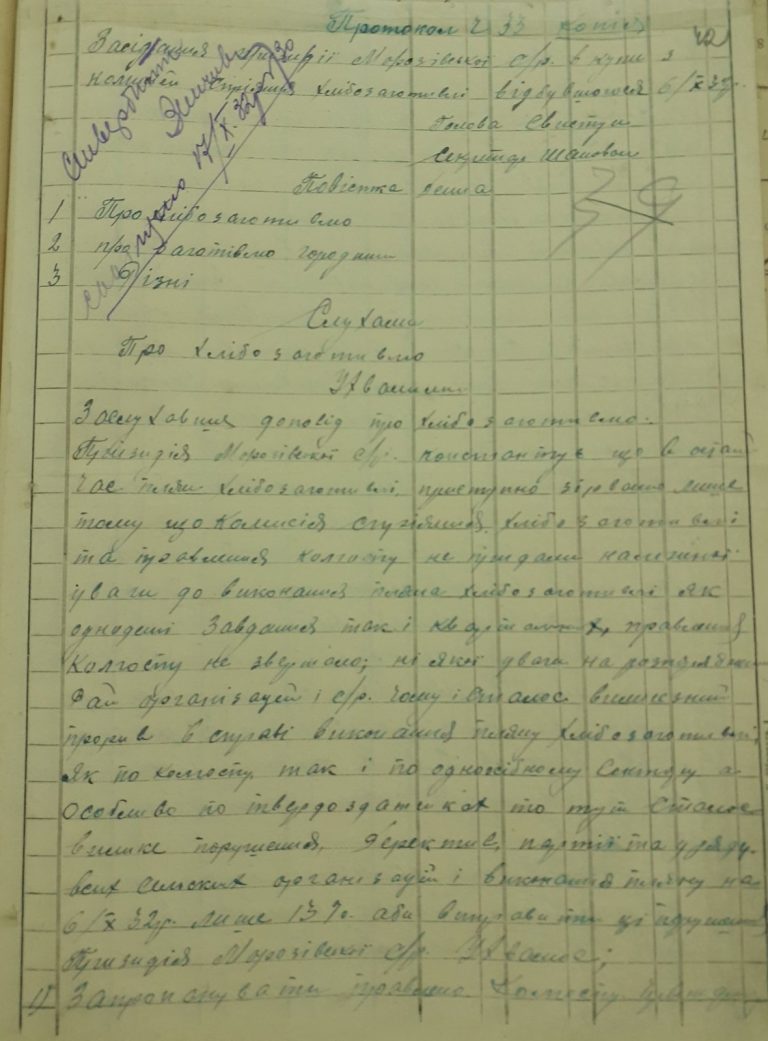 Протокол Ч 33 копія
42
Засідання президії Морозівської с/р. в купі з
комісією сприяння хлібозаготівлі відбувшогося 6/X 32р.
Голова Свистун
Секретар Шаповал
Повістка денна
1 Про хлібозаготівлю
2 про заготівлю городини
3 Різні
Слухали
Про хлібозаготівлю
Ухвалили
Заслухавши доповід про хлібозаготівлю.
Президія Морозівської с/р. константує що в остан
час плян хлібозаготівлі, приступно зірвано лише
тому що комісія сприяння хлібозаготівлі
та правління колгоспу не придали належної
уваги до виконання пляна хлібозаготівлі як
одноденні завдання так і правління
колгоспу не звертало; ні якої уваги на
рай організацій і с/р. чому і сталос величезний
прорив в справі виконання пляну хлібозаготівлі
як по колгоспу так і по одноосібному сектору а
особливо по твердоздатчиках то тут сталос
велике порушення, деректив, партії та уряду.
всіх сельских організацій і виконання пляну на
6/X 32р. лише 13% аби виправити ці порушення
Президія Морозівської с/р. Ухвалює;
1) Запропонувати правлінню колгоспу
17/X.32р.